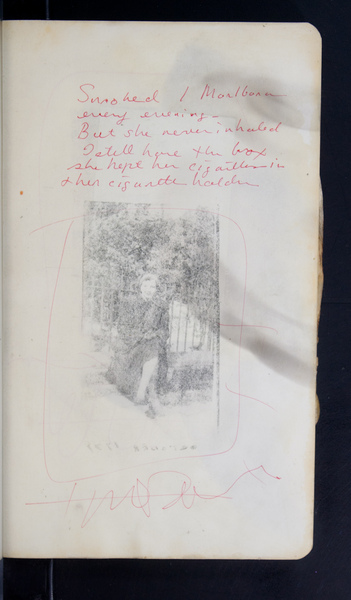 Smoked 1 Marlboro
every evening –
But she never inhaled
I still have the box
she kept her cigarettes in
& her cigarette holder